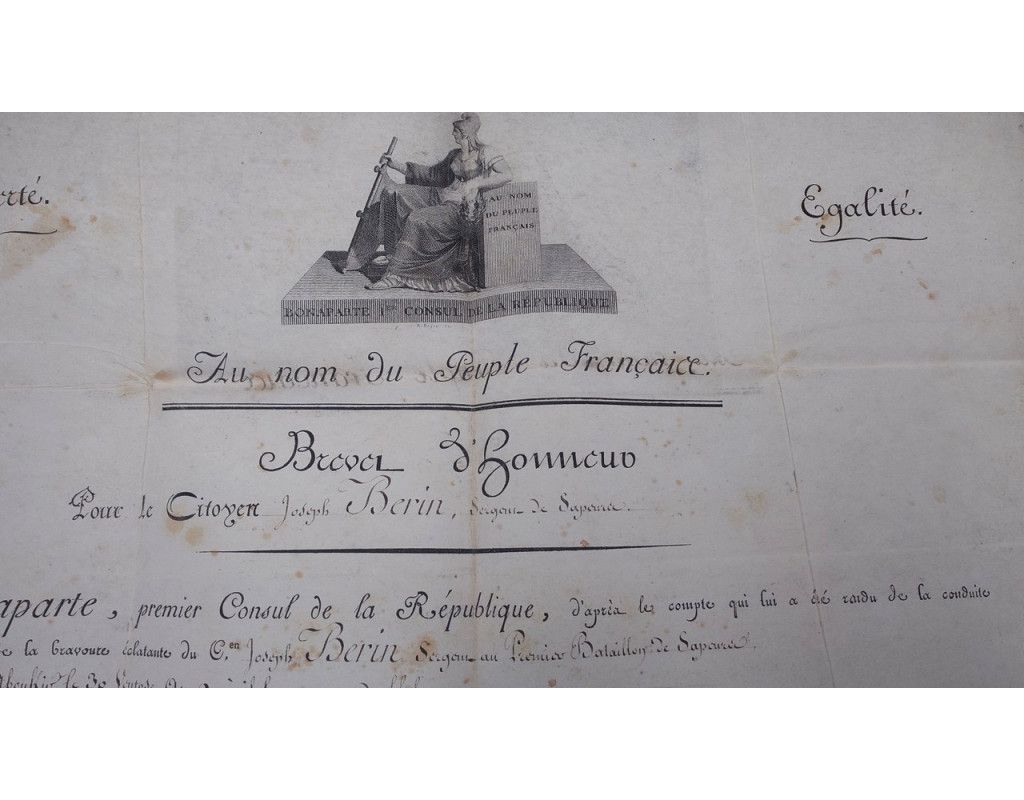 AU NOM
DU PEUPLE
FRANÇAIS
BONAPARTE 1er CONSUL DE LA RÉPUBLIQUE
erté. Egalité.
Au nom du Peuple Française.
Brevet d'Honneur
Pour le Citoyen Joseph Berin, Sergent de Sapeurs.
aparte, premier Consul de la République, d'après le compte qui lui a été rendu de la conduite
la bravoure éclatante du C.en Joseph Berin Sergent au Premier Bataillon de Sapeurs,
le 30 Ventose